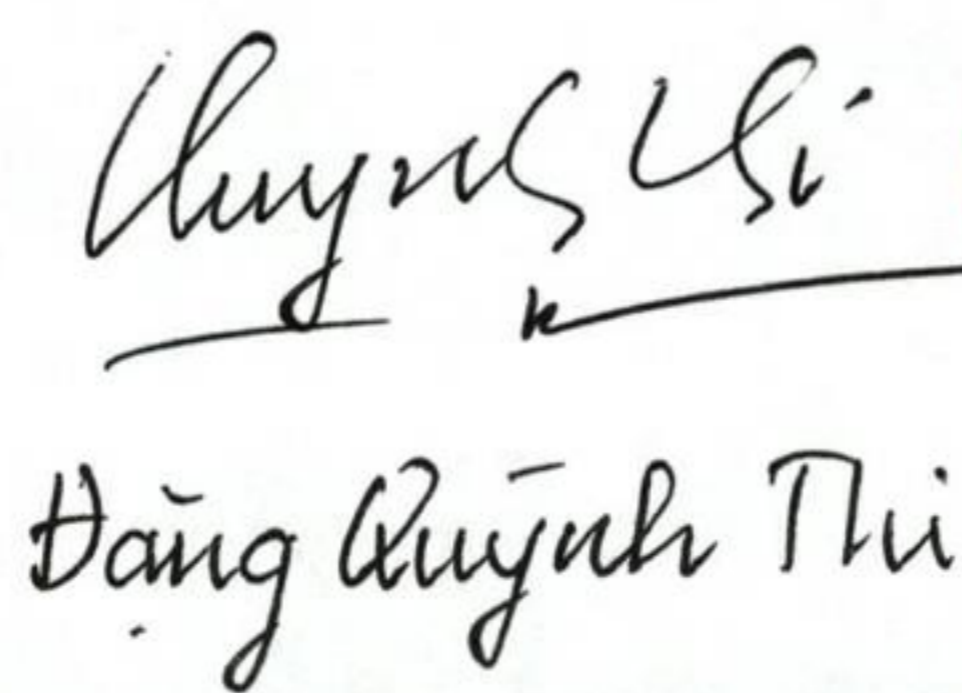 Quỳnh Thi
Đặng Quỳnh Thi